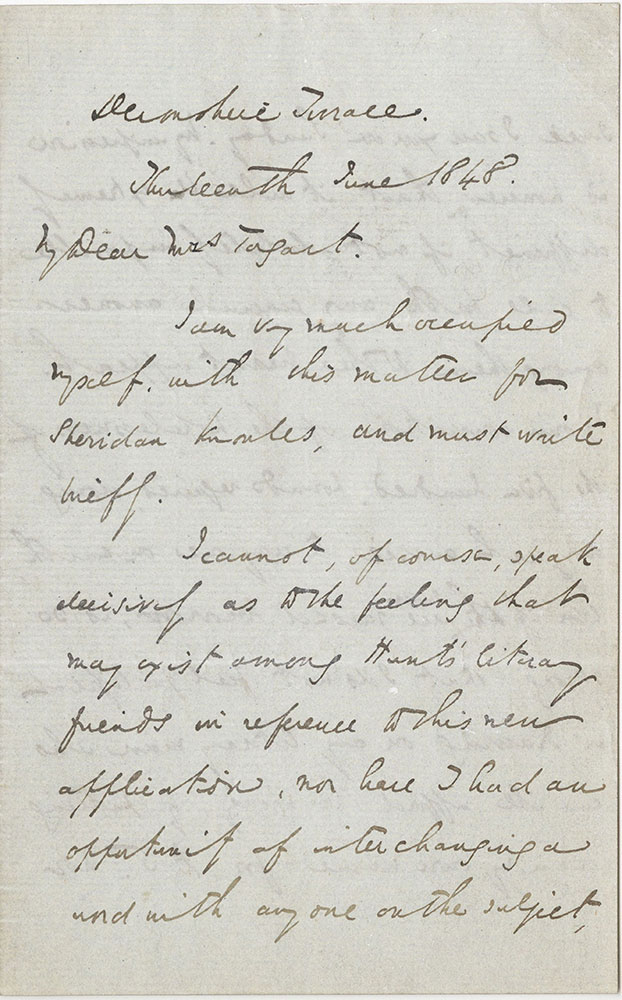 Devonshire Terrace.
Thirteenth June 1848.
My Dear Mrs Tagart.
I am very much occupied
myself, with this matter for
Sheridan Knowles, and must write
briefly.
I cannot, of course, speak
decisively as to the feeling that
may exist among Hunt's literary
friends in reference to this new
application, nor have I had an
opportunity of interchanging a
word with any one on the subject,